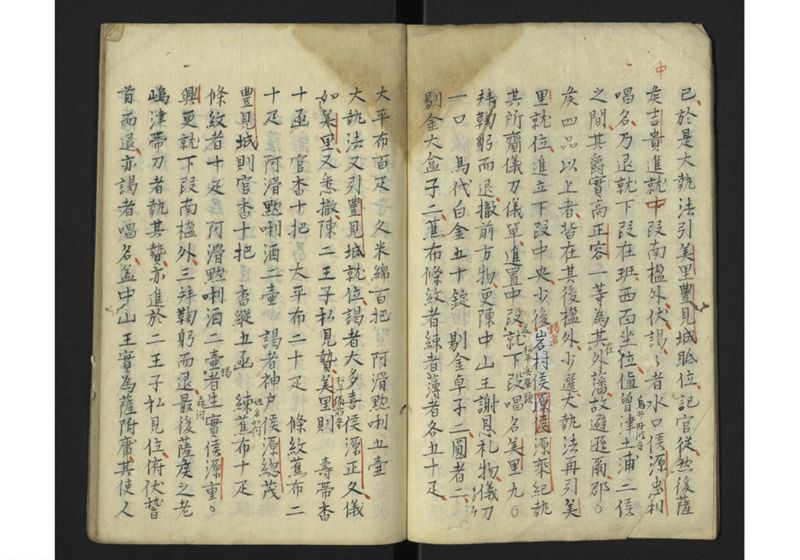 已於是大執法引美里豊見城胝位記官從然後薩
矦吉貴進就中段南楹外伏謁〻者水口侯源忠利
唱名乃退就下段在班西面坐位値曽津土浦二侯
之間其爵實高正容一等為其外藩故避遜爾郡。
矦四品以上者皆在其後楹外少選大執法再引美
里就位進立下段中央少後岩村侯源乘紀執
其所齎儀刀儀單進置中段就下段唱名美里九。
拜鞠躬而退撤前方物更陳中山王謝恩礼物儀刀
一口 馬代白金五十錠 剔金卓子二圓者二
剔金大盒子二蕉布條紋者練者薄者各五十疋
大平布百疋 久米綿百把 阿滑㸃唎五壷
大執法又引豊見城就位謁者大多喜侯源正久儀
如美里又悉撤陳二王子私見贄美里則 壽帯杳
十函 官杳十把 大平布二十疋 條紋蕉布二
十疋 阿滑㸃唎酒二壷 謁者神戸侯源總茂
豊見城則官杳十把 香縱五函 練蕉布十疋
條紋者十疋 阿滑㸃唎酒二壷者生實侯源重。
興更就下段南楹外三拜鞠躬而退最後薩矦之老
嶋津帯刀者執其贄亦進於二王子私見位俯伏㫖
首而退亦謁者唱名盖中山王實為薩附庸其使人